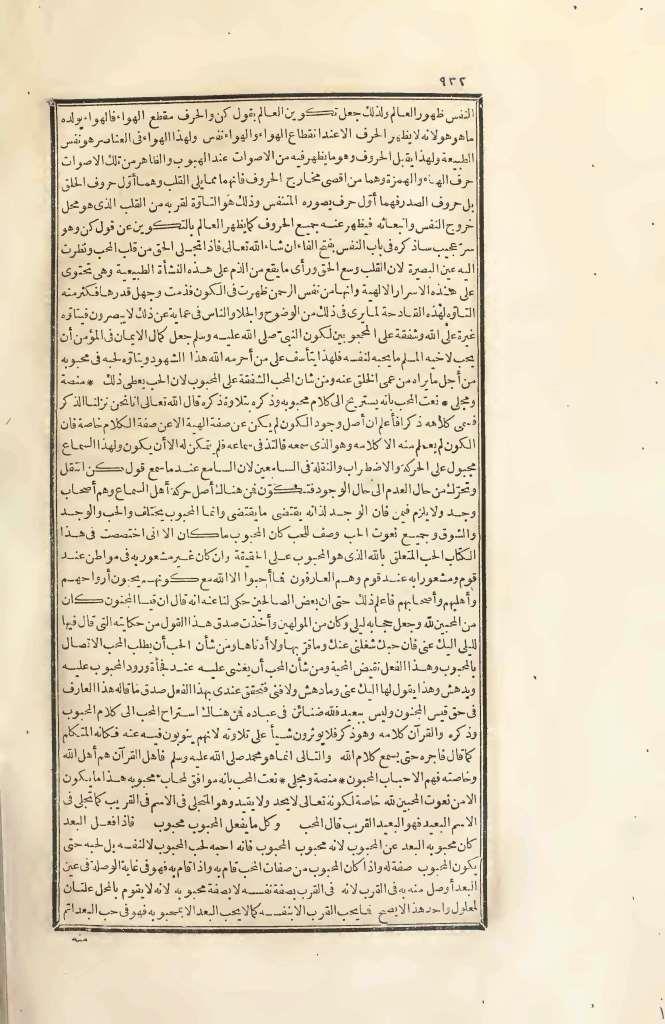 ٩٣٢
النفس ظهور العالم ولذلك جعل تكوين العالم بقول كن والحرف مقطع الهواء فالهواء يولده
ما هو هو لانه لا يظهر الحرف الا عند انقطاع الهواء والهواء نفس ولهذا الهواء فى العناصر هو نفس
الطبيعة ولهذا يقبل الحروف وهو ما يظهر فيه من الاصوات عند الهبوب والظاهر من تلك الاصوات
حرف الهاء والهمزة وهما من اقصى مخارج الحروف فانهما مما يلى القلب وهما أول حروف الحلق
بل حروف الصدر فهما أول حرف يصوره المتنفس وذلك هو التأوه لقربه من القلب الذى هو محل
خروج النفس وانبعاثه فيظهر عنه جميع الحروف كما يظهر العالم بالتكوين عن قول كن وهو
سر عجيب سأذكره فى باب النفس بفتح الفاء ان شاء الله تعالى فاذا تجلى الحق من قلب المحب ونظرت
اليه عين البصيرة لان القلب وسع الحق ورأى ما يقع من الذم على هذه النشأة الطبيعية وهى تحتوى
على هذه الاسرار الالهية وانها من نفس الرحمن ظهرت فى الكون فذمت وجهل قدرها فكثر منه
التأوه لهذه القادحة لما يرى فى ذلك من الوضوح والجلا والناس فى عماية عن ذلك لا يبصرون فيتأوه
غيرة على الله وشفقة على المحجوبين لكون النبى صلى الله عليه وسلم جعل كمال الايمان فى المؤمن أن
يحب لاخيه المسلم ما يحبه لنفسه فلهذا يتأسف على من أحرمه الله هذا الشهود ويتأوه لحبه فى محبوبه
من أجل ما يراه من عمى الخلق عنه ومن شأن المحب الشفقة على المحبوب لان الحب يعطى ذلك * منصة
ومجلى * نعت المحب بأنه يستريح الى كلام محبوبه وذكره بتلاوة ذكره قال الله تعالى انا نحن نزلنا الذكر
فسمى كلامه ذكرا فاعلم ان أصل وجود الكون لم يكن عن صفة الهية الا عن صفة الكلام خاصة فان
الكون لم يعلم منه الا كلامه وهو الذى سمعه فالتذ فى سماعه فلم يتمكن له الا أن يكون ولهذا السماع
مجبول على الحركة والاضطراب والنقلة فى السامعين لان السامع عند ما سمع قول كن انتقل
وتحرك من حال العدم الى حال الوجود فتكون فمن هناك أصل حركة أهل السماع وهم أصحاب
وجد ولا يلزم فيمن فان الوجد لذاته يقتضى ما يقتضى وانما المحبوب يختلف والحب والوجد
والشوق وجميع نعوت الحب وصف للحب كان المحبوب ما كان الا انى اختصصت فى هذا
الكتاب الحب المتعلق بالله الذى هو المحبوب على الحقيقة وان كان غير مشعور به فى مواطن عند
قوم ومشعورا به عند قوم وهم العارفون فما أحبوا الا الله مع كونهم يحبون أرواحهم
وأهليهم وأصحابهم فاعلم ذلك حتى ان بعض الصالحين حكى لنا عنه انه قال ان قيسا المجنون كان
من المحبين لله وجعل حجابه ليلى وكان من المولهين وأخذت صدق هذا القول من حكايته التى قال فيها
لليلى اليك عنى فان حبك شغلنى عنك وما قربها ولا أدناها ومن شأن الحب أن يطلب المحب الاتصال
بالمحبوب وهذا الفعل نقيض المحبة ومن شأن المحب أن يغشى عليه عند فجأة ورود المحبوب عليه
ويدهش وهذا يقول لها اليك عنى وما دهش ولا فنى فتحقق عندى بهذا الفعل صدق ما قاله هذا العارف
فى حق قيس المجنون وليس ببعيد فلله ضنائن فى عباده فمن هناك استراح المحب الى كلام المحبوب
وذكره والقرآن كلامه وهو ذكر فلا يؤثرون شيأ على تلاوته لانهم ينوبون فيه عنه فكأنه المتكلم
كما قال فأجره حتى يسمع كلام الله والتالى انما هو محمد صلى الله عليه وسلم فأهل القرآن هم أهل الله
وخاصته فهم الاحباب المحبون * منصة ومجلى * نعت المحب بأنه موافق لمحاب محبوبه هذا ما يكون
الا من نعوت المحبين لله خاصة لكونه تعالى لا يحد ولا يتقيد وهو المتجلى فى الاسم فى القريب كما تجلى فى
الاسم البعيد فهو البعيد القريب قال المحب وكل ما يفعل المحبوب محبوب فاذا فعل البعد
كان محبوبه البعد عن المحبوب لانه محبوب المحبوب فانه احبه لحب المحبوب لا لنفسه بل لحبه حتى
يكون المحبوب صفة له واذا كان المحبوب من صفات المحب قام به واذا قام به فهو فى غاية الوصلة فى عين
البعد أوصل منه به فى القرب لانه فى القرب بصفة نفسه لا بصفة محبوبه لانه لا يقوم بالمحل علتان
لمعلول واحد هذا لا يصح فما يحب القرب الا بنفسه كما لا يحب البعد الا بمحبوبه فهو فى حب البعد اتم
منه